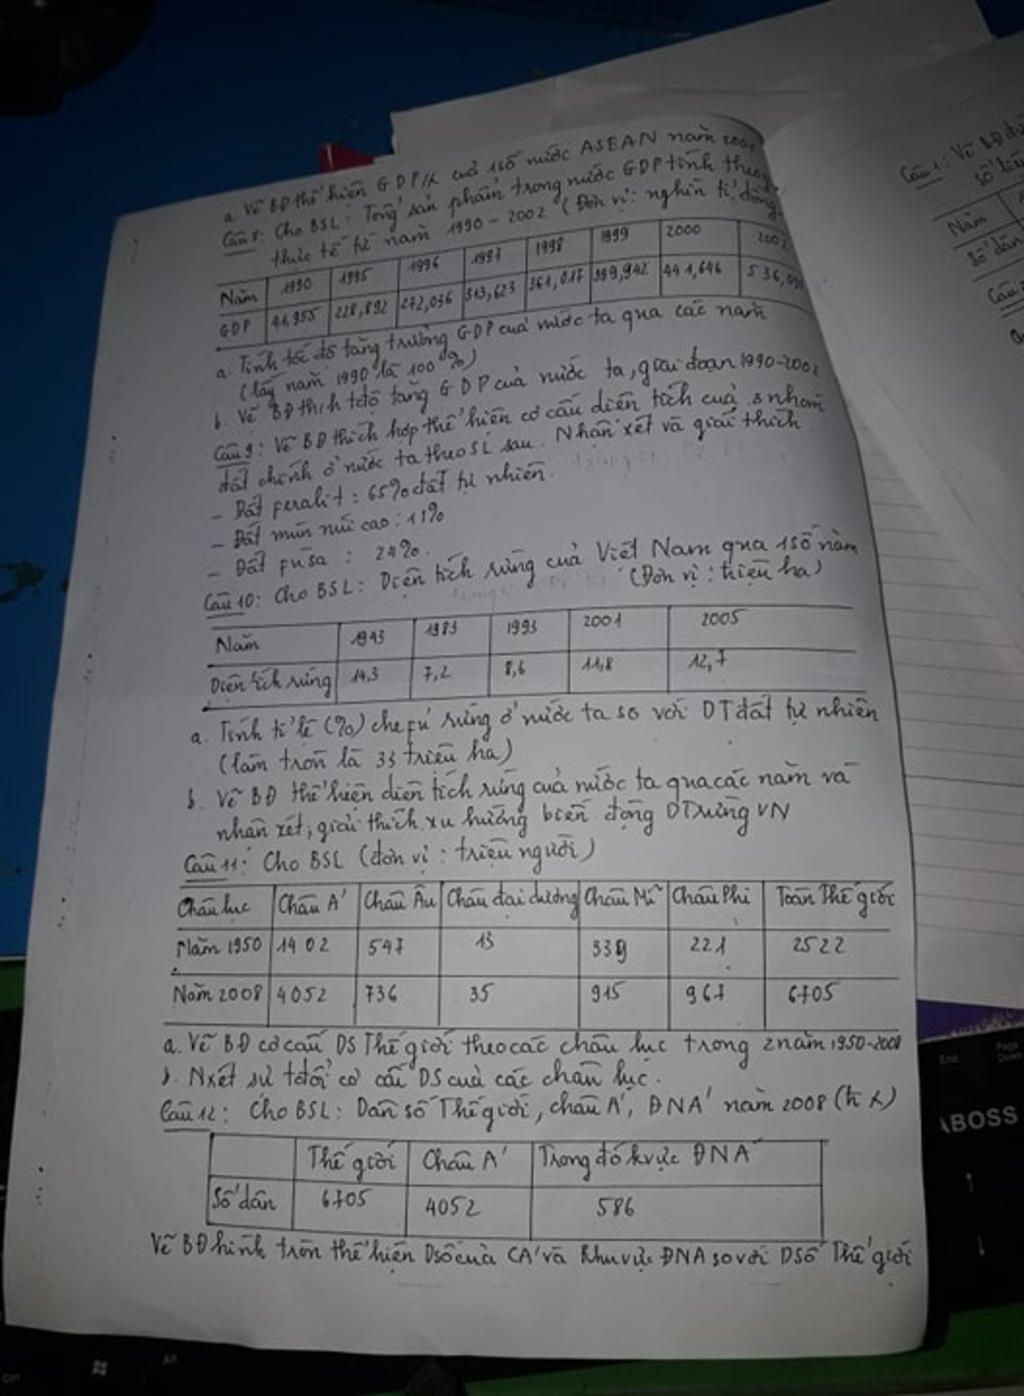 a. Vẽ BĐ thể hiện GDP/ của 1 số nước ASEAN năm
Câu 8: Cho BSL: Tổng sản phẩm trong nước GDP tính theo
thực tế từ năm 1990 - 2002 (Đơn vị: nghìn tỉ đồng
Năm 1990 1995 1996 1997 1998 1999 2000 2002
GDP 41,955 228,892 272,036 313,623 361,017 399,942 441,646
a. Tính tốc độ tăng trưởng GDP của nước ta qua các năm
(lấy năm 1990 là 100%)
b. Vẽ BĐ thích tđộ tăng GDP của nước ta, giai đoạn 1990-2002
Câu 9: Vẽ BĐ thích hợp thể hiện cơ cấu diện tích của 3 nhóm
đất chính ở nước ta theo SL sau. Nhận xét và giải thích
- Đất feralit: 65% đất tự nhiên.
- Đất mùn núi cao: 11%
- Đất phù sa: 24%.
Câu 10: Cho BSL: Diện tích rừng của Việt Nam qua 1 số năm
(Đơn vị: triệu ha)
Năm 1943 1983 1993 2001 2005
Diện tích rừng 14,3 7,2 8,6 11,8 12,7
a. Tính tỉ lệ (%) che phủ rừng ở nước ta so với DT đất tự nhiên
(làm tròn là 33 triệu ha)
b. Vẽ BĐ thể hiện diện tích rừng của nước ta qua các năm và
nhận xét, giải thích xu hướng biến động DT rừng VN
Câu 11: Cho BSL (đơn vị: triệu người)
Châu lục Châu Á Châu Âu Châu đại dương Châu Mĩ Châu Phi Toàn Thế giới
Năm 1950 1402 547 13 339 221 2522
Năm 2008 4052 736 35 915 967 6705
a. Vẽ BĐ cơ cấu DS Thế giới theo các châu lục trong 2 năm 1950-2008
b. Nxét sự tđổi cơ cấu DS của các châu lục.
Câu 12: Cho BSL: Dân số Thế giới, châu Á, ĐNA năm 2008
Thế giới Châu Á Trong đó kvực ĐNA
Số dân 6705 4052 586
Vẽ BĐ hình tròn thể hiện Dsố của CA và khu vực ĐNA so với DSố Thế giới
Câu 1: Vẽ BĐ
Năm
Số dân
Câu 2
End
Page Down
ABOSS
Alt